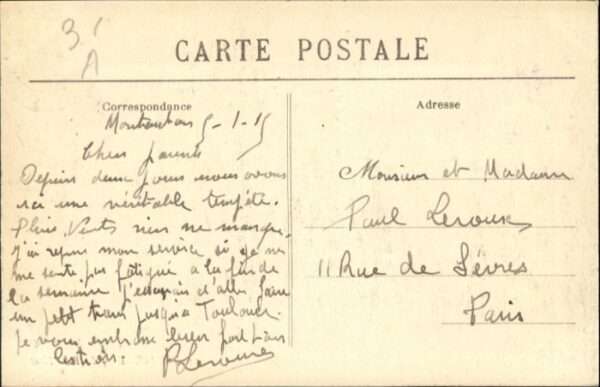 3 A
CARTE POSTALE
Correspondance
Adresse
Montauban 5-1-15
Chers parents
Depuis deux jours nous avons
ici une véritable tempête.
Pluie, Vents rien ne manque.
J'ai repris mon service si je ne
me sente pas fatigué a la fin de
la semaine j'essayais d'aller faire
un petit tour jusqu'a Toulouse.
Je vous embrasse bien fort tous
les trois.
P Leroux
Monsieur et Madame
Paul Leroux
11 Rue de Sèvres
Paris